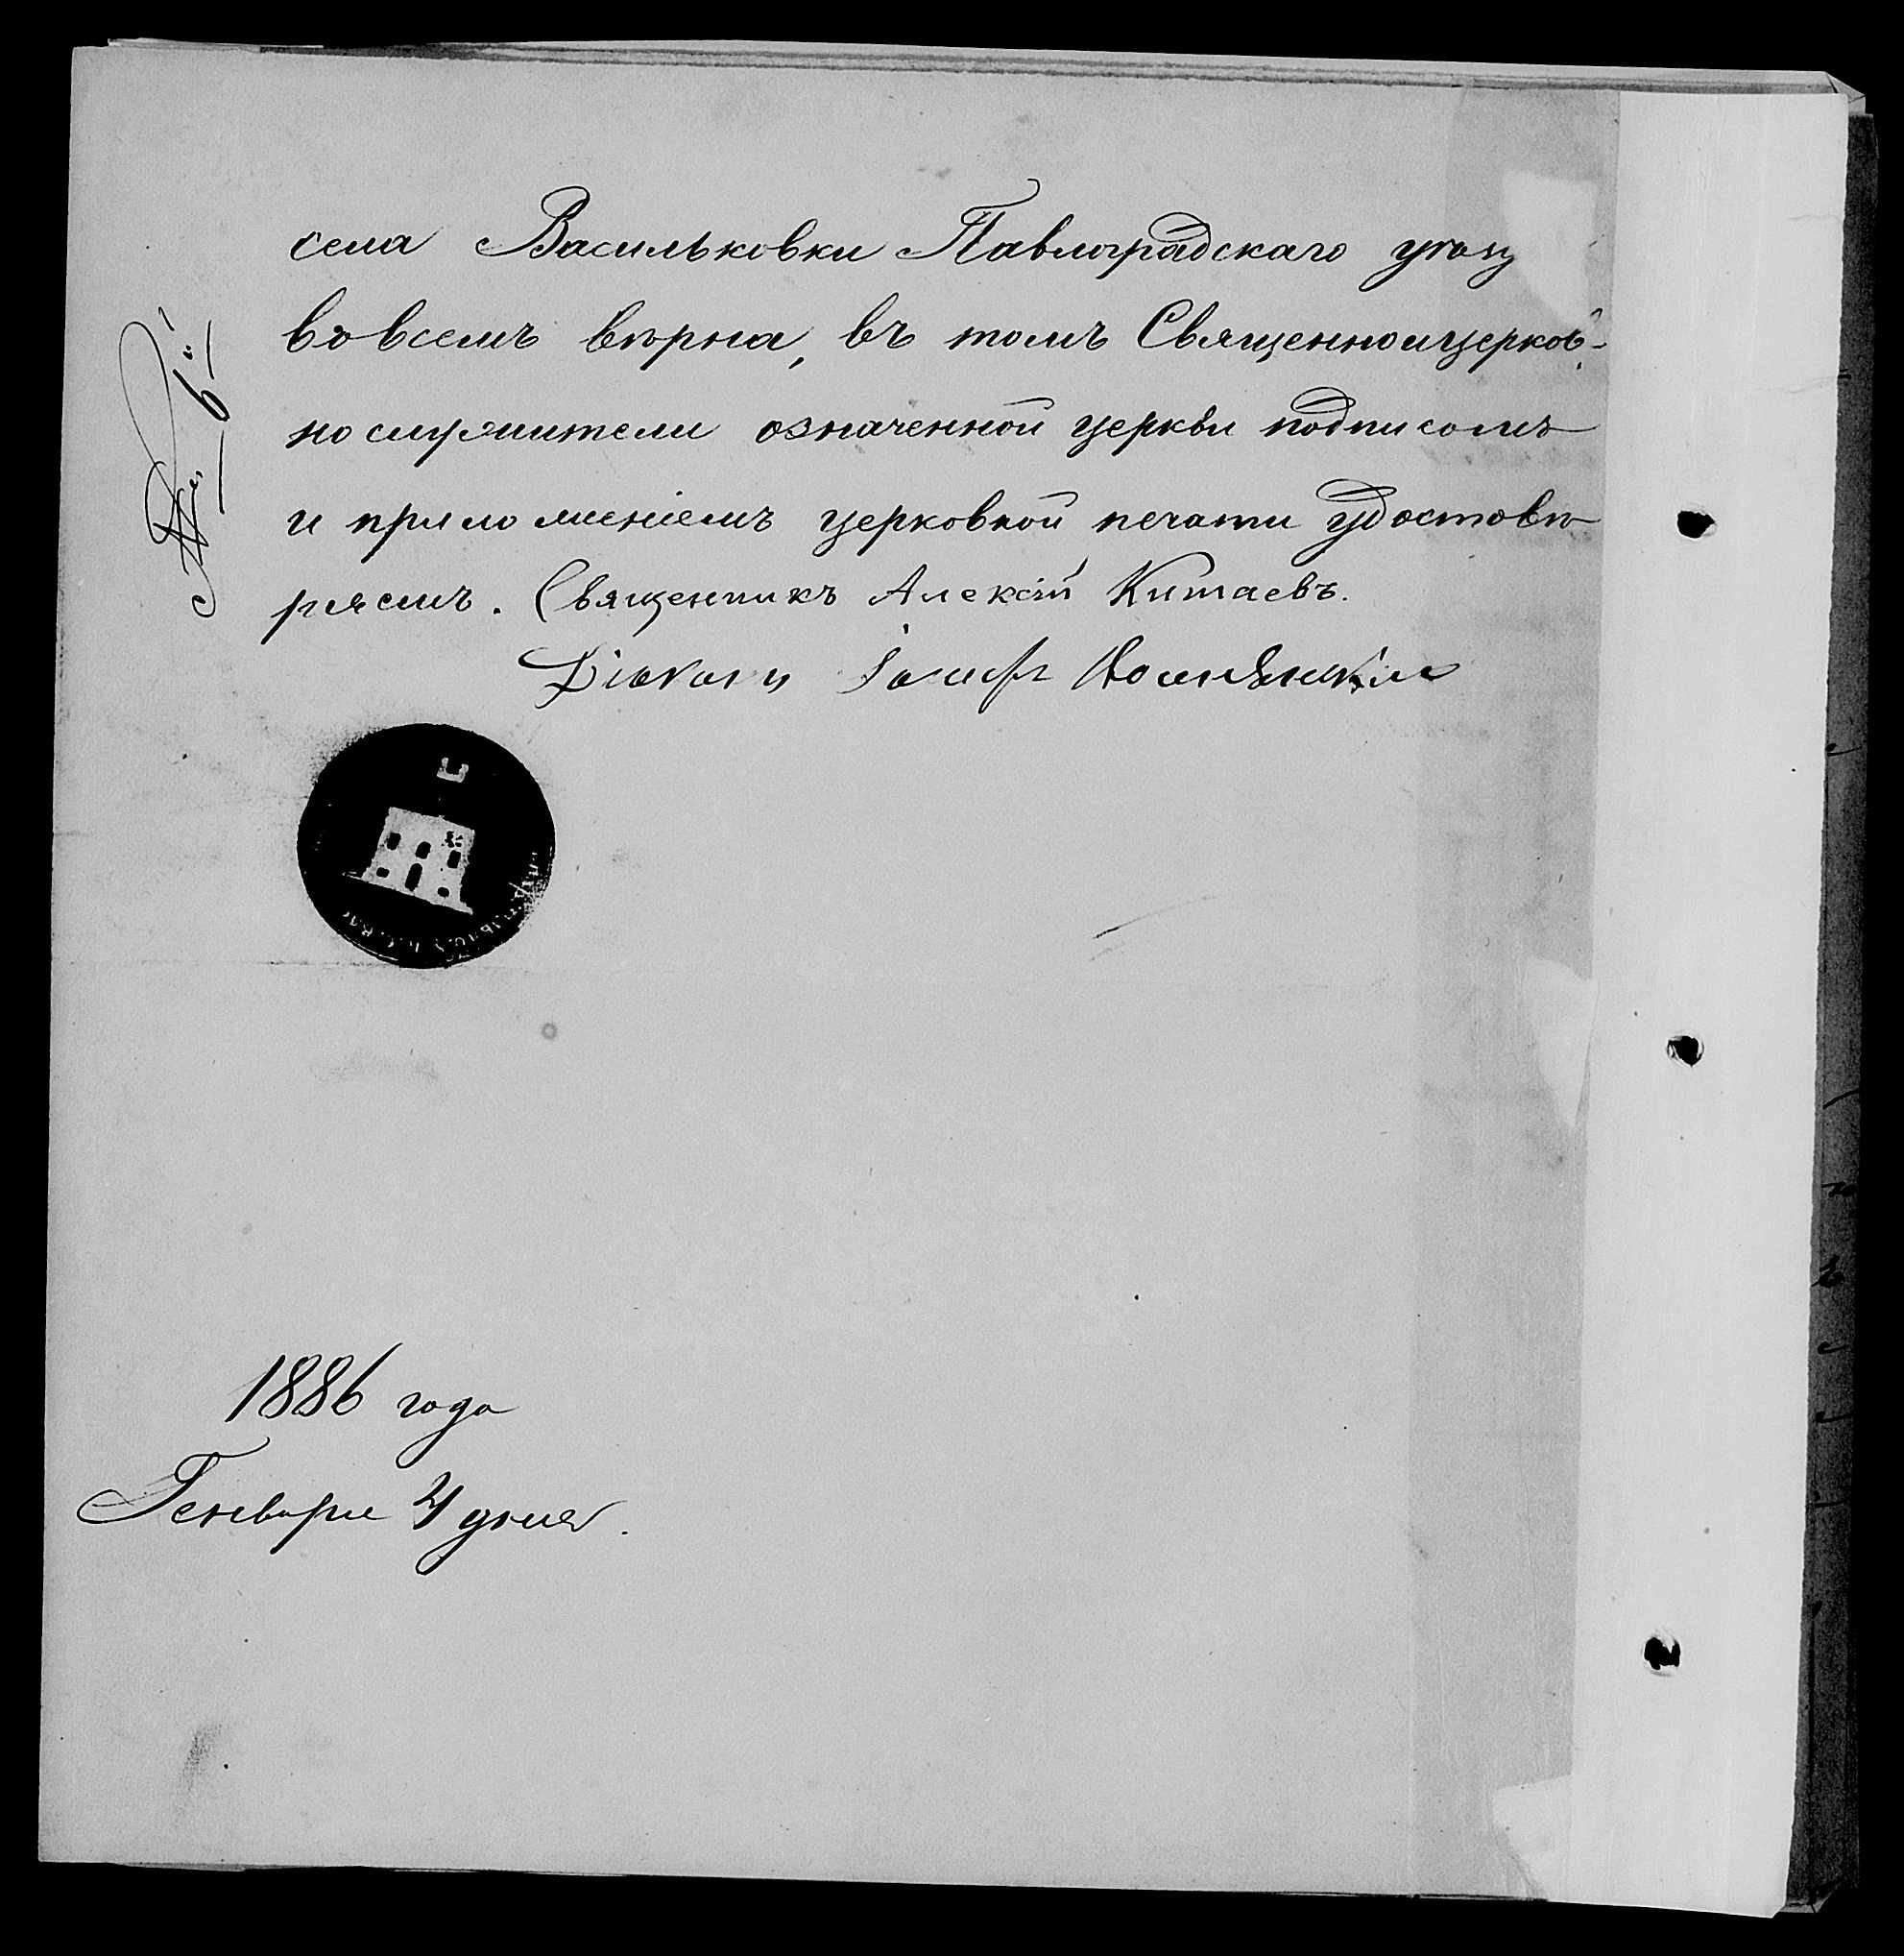 села Васильковки Павлоградскаго уѣзд
вовсемъ вѣрна, въ томъ Священноицерков-
нослужители означенной церкви подписомъ
и приложеніемъ церковной печати удостовѣ
ряемъ. Священникъ Алексій Китаевъ.
Діаконъ Іосифъ
1886 года
Генваря 4 дня.